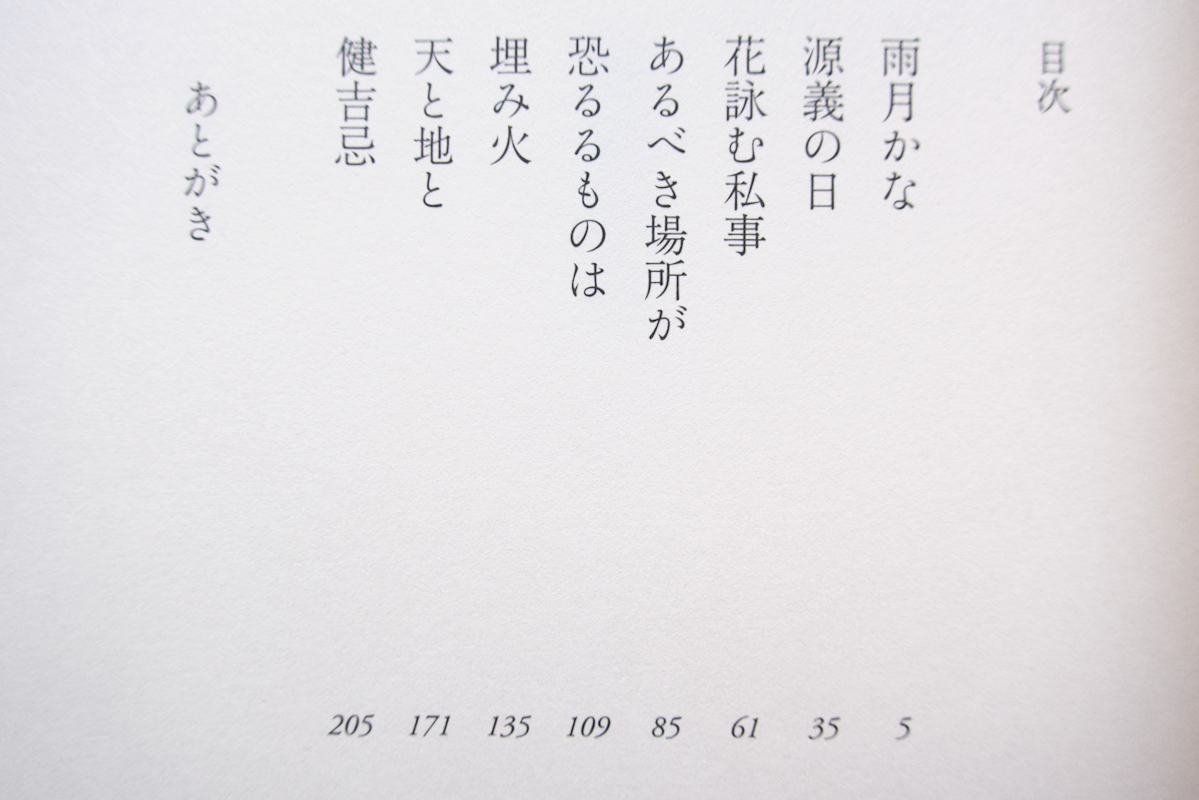 目次
雨月かな 5
源義の日 35
花詠む私事 61
あるべき場所が 85
恐るるものは 109
埋み火 135
天と地と 171
健吉忌 205
あとがき